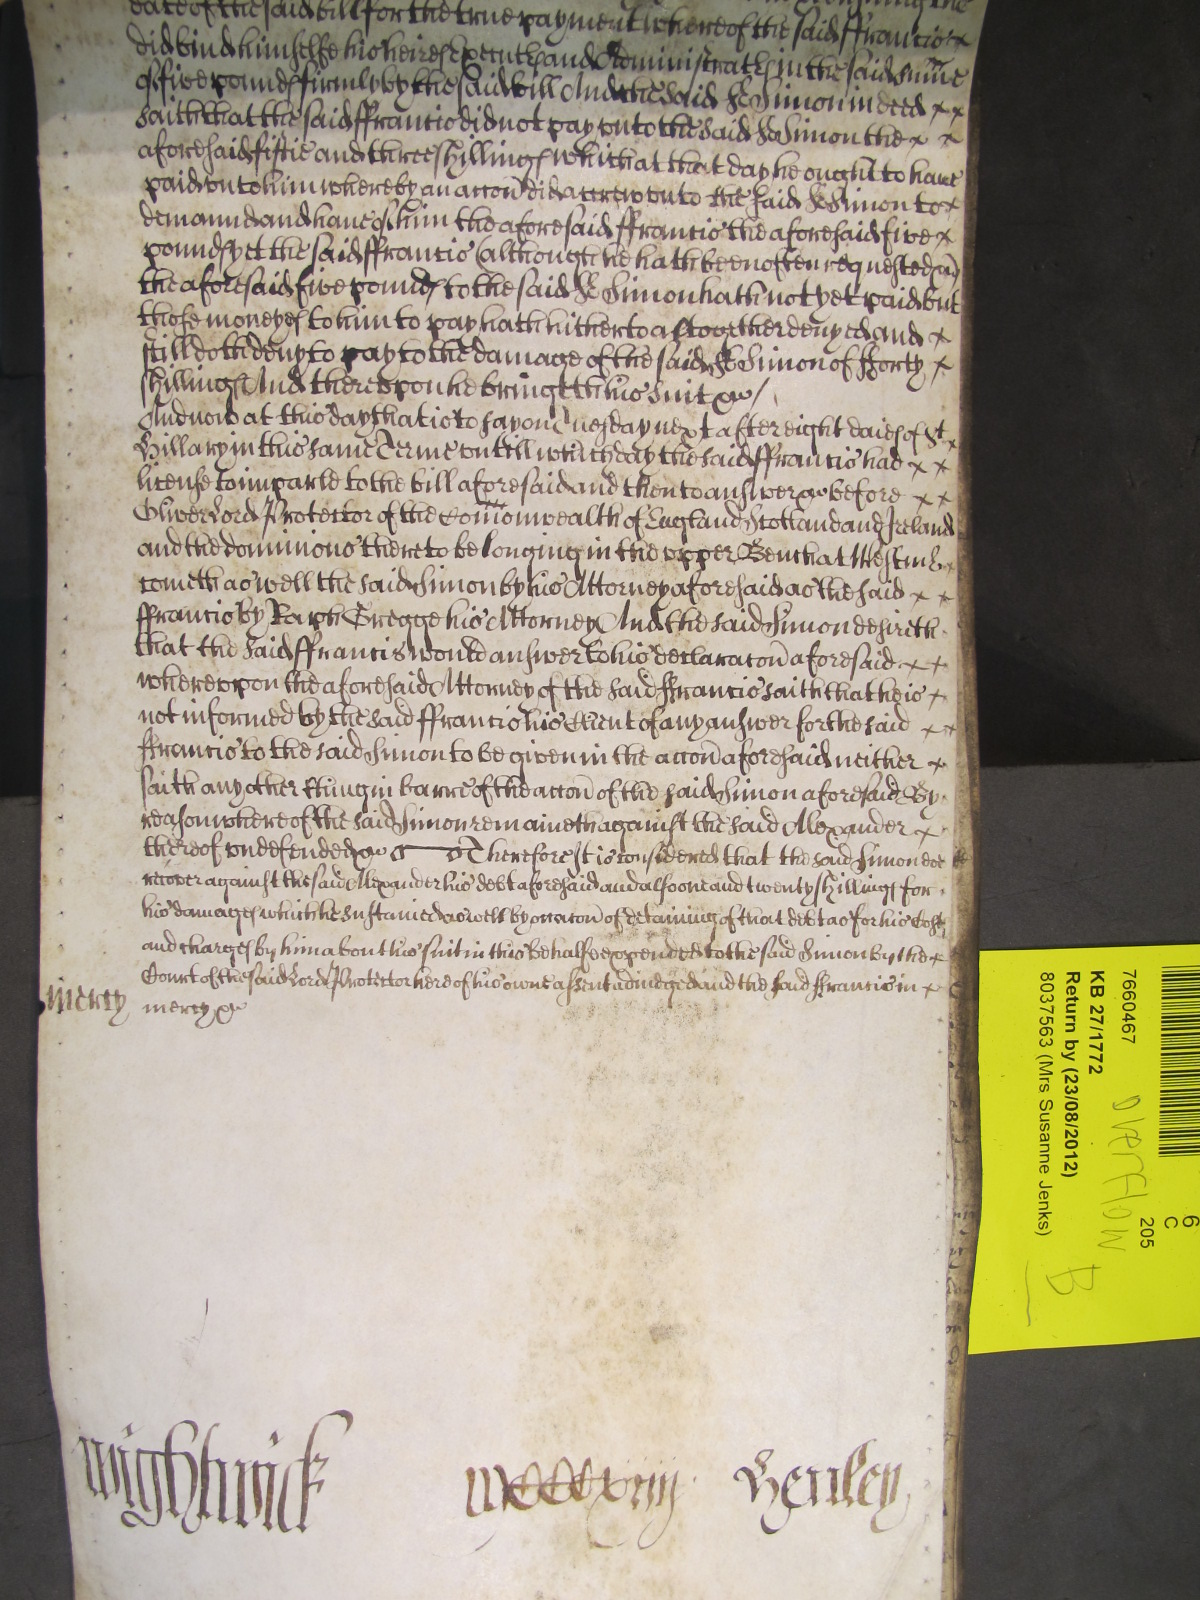 date of the said bill for the true payment whereof the said ffrancis x
did bind himselfe his heires Executors and Administrators in the said summe
of five pounds firmly by the said bill And the said Simon in deed x x
saith that the said ffrancis did not pay unto the said Simon the x x
aforesaid fiftie and three shillings which at that day he ought to have
paid unto him whereby an accon did accrew unto the said Simon to x
demaund and have of him the aforesaid ffrancis the aforesaid five x
pounds yet the said ffrancis (although he hath been often requested)
the aforesaid five pounds to the said Simon hath not yet paid but
those moneyes to him to pay hath hitherto altogether denyed and x
still doth deny to pay to the damage of the said Simon of fforty x
shillings And thereupon he bringeth his suit &c /
And now at this day that is to say on nesday next after eight daies of St x
Hillary in this same Terme untill which day the said ffrancis had x x
license to imparle to the bill aforesaid and then to answer &c before x x
Oliver Lord Protector of the Comonwealth of England Scotland and Ireland
and the dominions thereto belonging in the upper Bench at Westmr x
cometh as well the said Simon by his Attorney aforesaid as the said x x
ffrancis by Raph Gregge his Attorney And the said Simon desireth
that the said ffrancis would answer to his declaracon aforesaid x x
whereupon the aforesaid Attorney of the said ffrancis saith that he is x
not informed by the said ffrancis his Client of any answer for the said x x
ffrancis to the said Simon to be given in the accon aforesaid neither x
saith any other thing in barre of the accon of the said Simon aforesaid By
reason whereof the said Simon remaineth against the said Alexander x
thereof undefended &c Therefore It is considered that the said Simon doe
recover against the said Alexander his debt aforesaid and alsoe one and twenty shillings for
his damages which he sustained aswell by occacon of detaining of that debt as for his Costs
and charges by him about his suit in this behalfe expended to the said Simon by the x
Court of the said Lord Protector here of his owne assent adiudged and the said ffrancis in x
mercy mercy &c
Wightwick Henley
7660467
KB 27/1772
Return by (23/08/2012)
8037563 (Mrs Susanne Jenks)
6
C
205
OVERFLOW
B